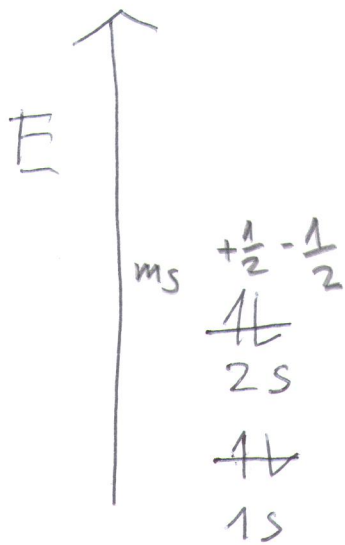 E
ms +1/2 -1/2
1↓
2s
1↓
1s